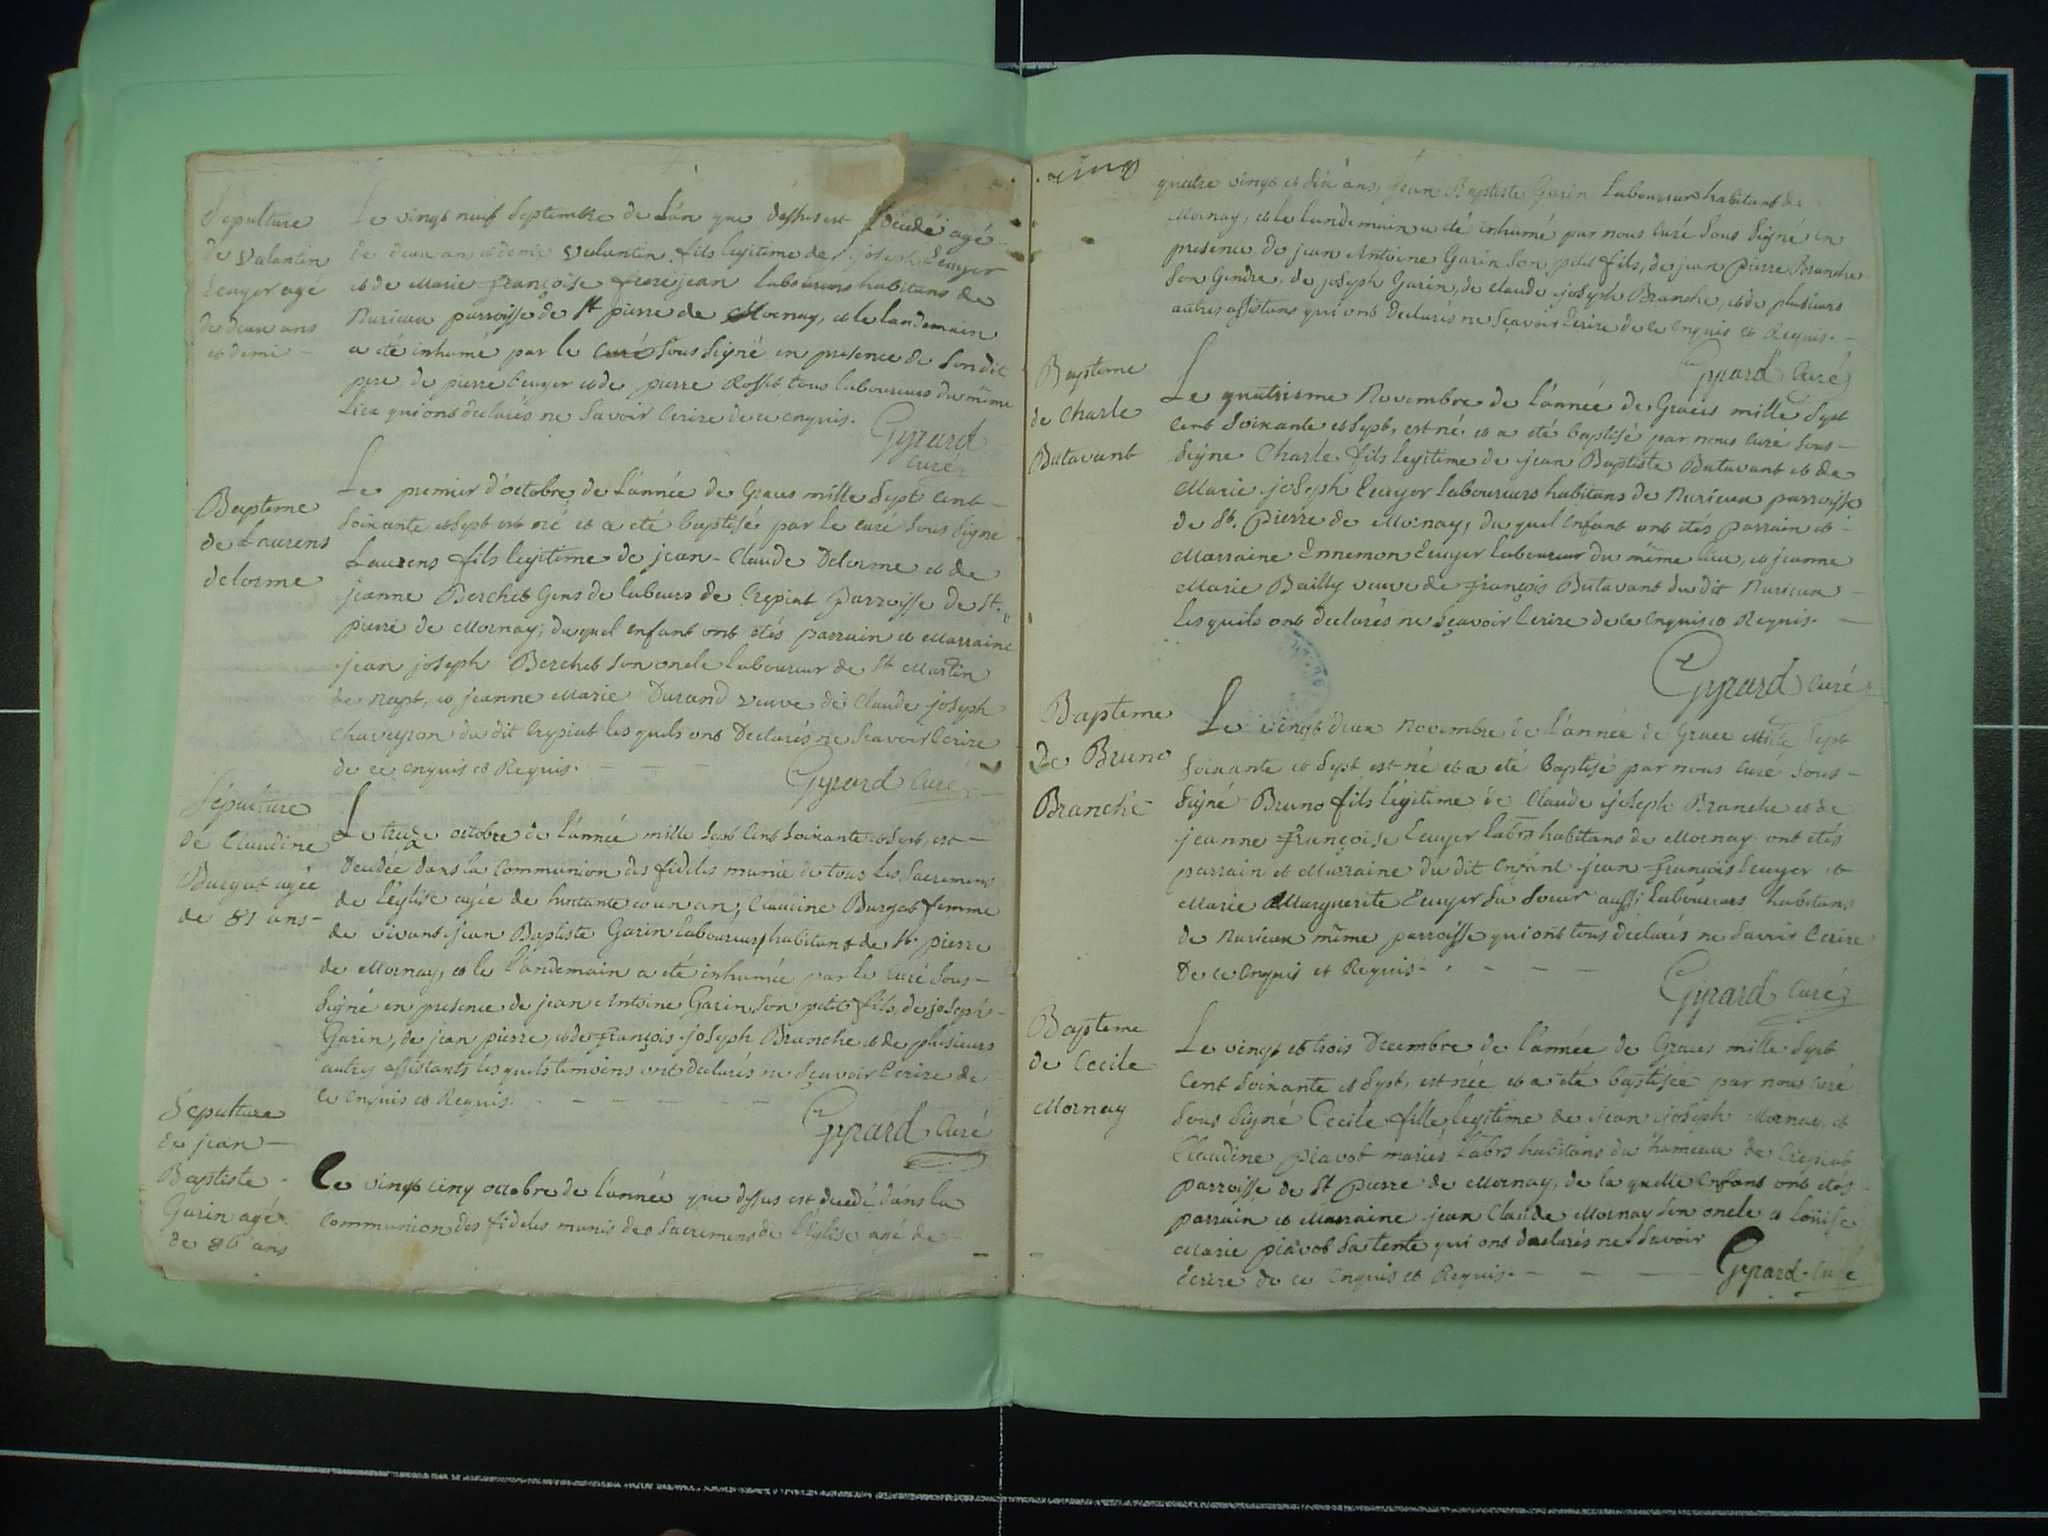 Sepulture
de Valantin
Ecuyer agé
de deux ans
et demi -
Le vingt neuf Septembre de L'án que dessus est décédé agé
de deux an et demi Valantin fils legitime de joseph Ecuyer
et de Marie Françoise Frerejean laboureurs habitans de
Nurieux parroisse de St pierre de Mornay, et le landemain
a été inhumé par le curé Sous Signé en presence de Son dit
pere, de pierre Ecuyer et de pierre Rosset tous laboureurs du même
Lieu qui ont declarés ne Savoir Ecrire de ce enquis.
Gyrard
curé
Bapteme
de Laurens
delorme
Le premier d'octobre de L'année de Graces mille Sept Cent
Soixante et Sept est né et a eté baptisé par le curé Sous Signé
Laurens fils legitime de jean-Claude Delorme et de
jeanne Berchet Gens de labeurs de Crepiat Parroisse de St.
pierre de Mornay; du quel enfant ont étés parrain et Marraine
jean joseph Berchet Son oncle laboureur de St Martin
de Napt, et jeanne Marie Durand veuve de Claude joseph
Chaveyron du dit Crepiat les quels ont Declarés ne Scavoir Ecrire
de ce enquis et Requis. - - -
Gyrard Curé
Sépulture
de Claudine
Burgat agée
de 81 ans-
Le treize octobre de L'année mille Sept Cent Soixante et Sept, est
Decédée dans la Communion des fideles munie de tous Les Sacremens
de L'église agée de huitante et un an; Claudine Burgat femme
de vivant jean Baptiste Garin laboureur habitant de St. pierre
de Mornay, et le l'andemain a été inhumée par le Curé Sous-
Signé en presence de jean Antoine Garin Son petit fils, de joseph
Garin, de jean pierre et de François joseph Branche et de plusieurs
autres assistants les quels temoins ont declarés ne Sçavoir Ecrire de
ce enquis et Requis. - - - - -
Gyrard Curé
Sepulture
de jean
Baptiste
Garin agé
de 86 ans
Le vingt cinq octobre de L'année que dessus est decedé dans la
Communion des fideles munis des Sacremens de L'église agé de
cinq
quatre vingt et six ans, jean Baptiste Garin Laboureur habitant de
Mornay, et le landemain a été inhumé par nous Curé Sous Signé en
presence de jean Antoine Garin Son petit fils, de jean Pierre Branche
Son Gendre, de joseph Garin, de claude joseph Branche, et de plusieurs
autres assistans qui ont Declarés ne Sçavoir Ecrire de ce enquis et Requis. -
Gyrard Curé
Bapteme
de Charle
Butavant
Le quatrieme Novembre de L'année de Graces mille Sept
Cent Soixante et Sept, est né et a eté baptisé par nous Curé Sous-
Signe Charle fils legitime de jean Baptiste Butavant et de
Marie joseph Ecuyer laboureurs habitans de Nurieux parroisse
de St. Pierre de Mornay, du quel Enfant ont étés parrain et
Marraine Ennemon Ecuyer laboureur du même lieu, et jeanne
Marie Bailly veuve de François Butavant du dit Nurieux
Les quels ont declarés ne Sçavoir Ecrire de ce enquis et Requis.
Gyrard Curé
Bapteme
de Bruno
Branche
Le vingt deux Novembre de L'année de Grace Mille Sept
Soixante et Sept est né et a eté Baptisé par nous Curé Sous-
Signé Bruno fils légitime de Claude joseph Branche et de
jeanne Françoise Ecuyer labrs habitans de Mornay ont étés
parrain et Marraine du dit Enfant jean François Ecuyer et
Marie Marguerite Ecuyer Sa Soeur aussi laboureurs habitans
de Nurieux même parroisse qui ont tous declarés ne Savoir Ecrire
De ce Enquis et Requis. - - - -
Gyrard Curé
Bapteme
de Cecile
Mornay
Le vingt et trois Decembre de L'année de Graces mille Sept
Cent Soixante et Sept, est née et a été baptisée par nous Curé
Sous Signé Cecile fille legitime de jean joseph Mornay, et
Claudine Piavot mariés labrs habitans du hameau de Crepiat
parroisse de St Pierre de Mornay, de la quelle Enfant ont étés
parrain et Marraine jean Claude Mornay Son oncle et Loüise
Marie Piavot Sa tente qui ont declarés ne Savoir
Ecrire de ce Enquis et Requis. - - -
Gyrard Curé